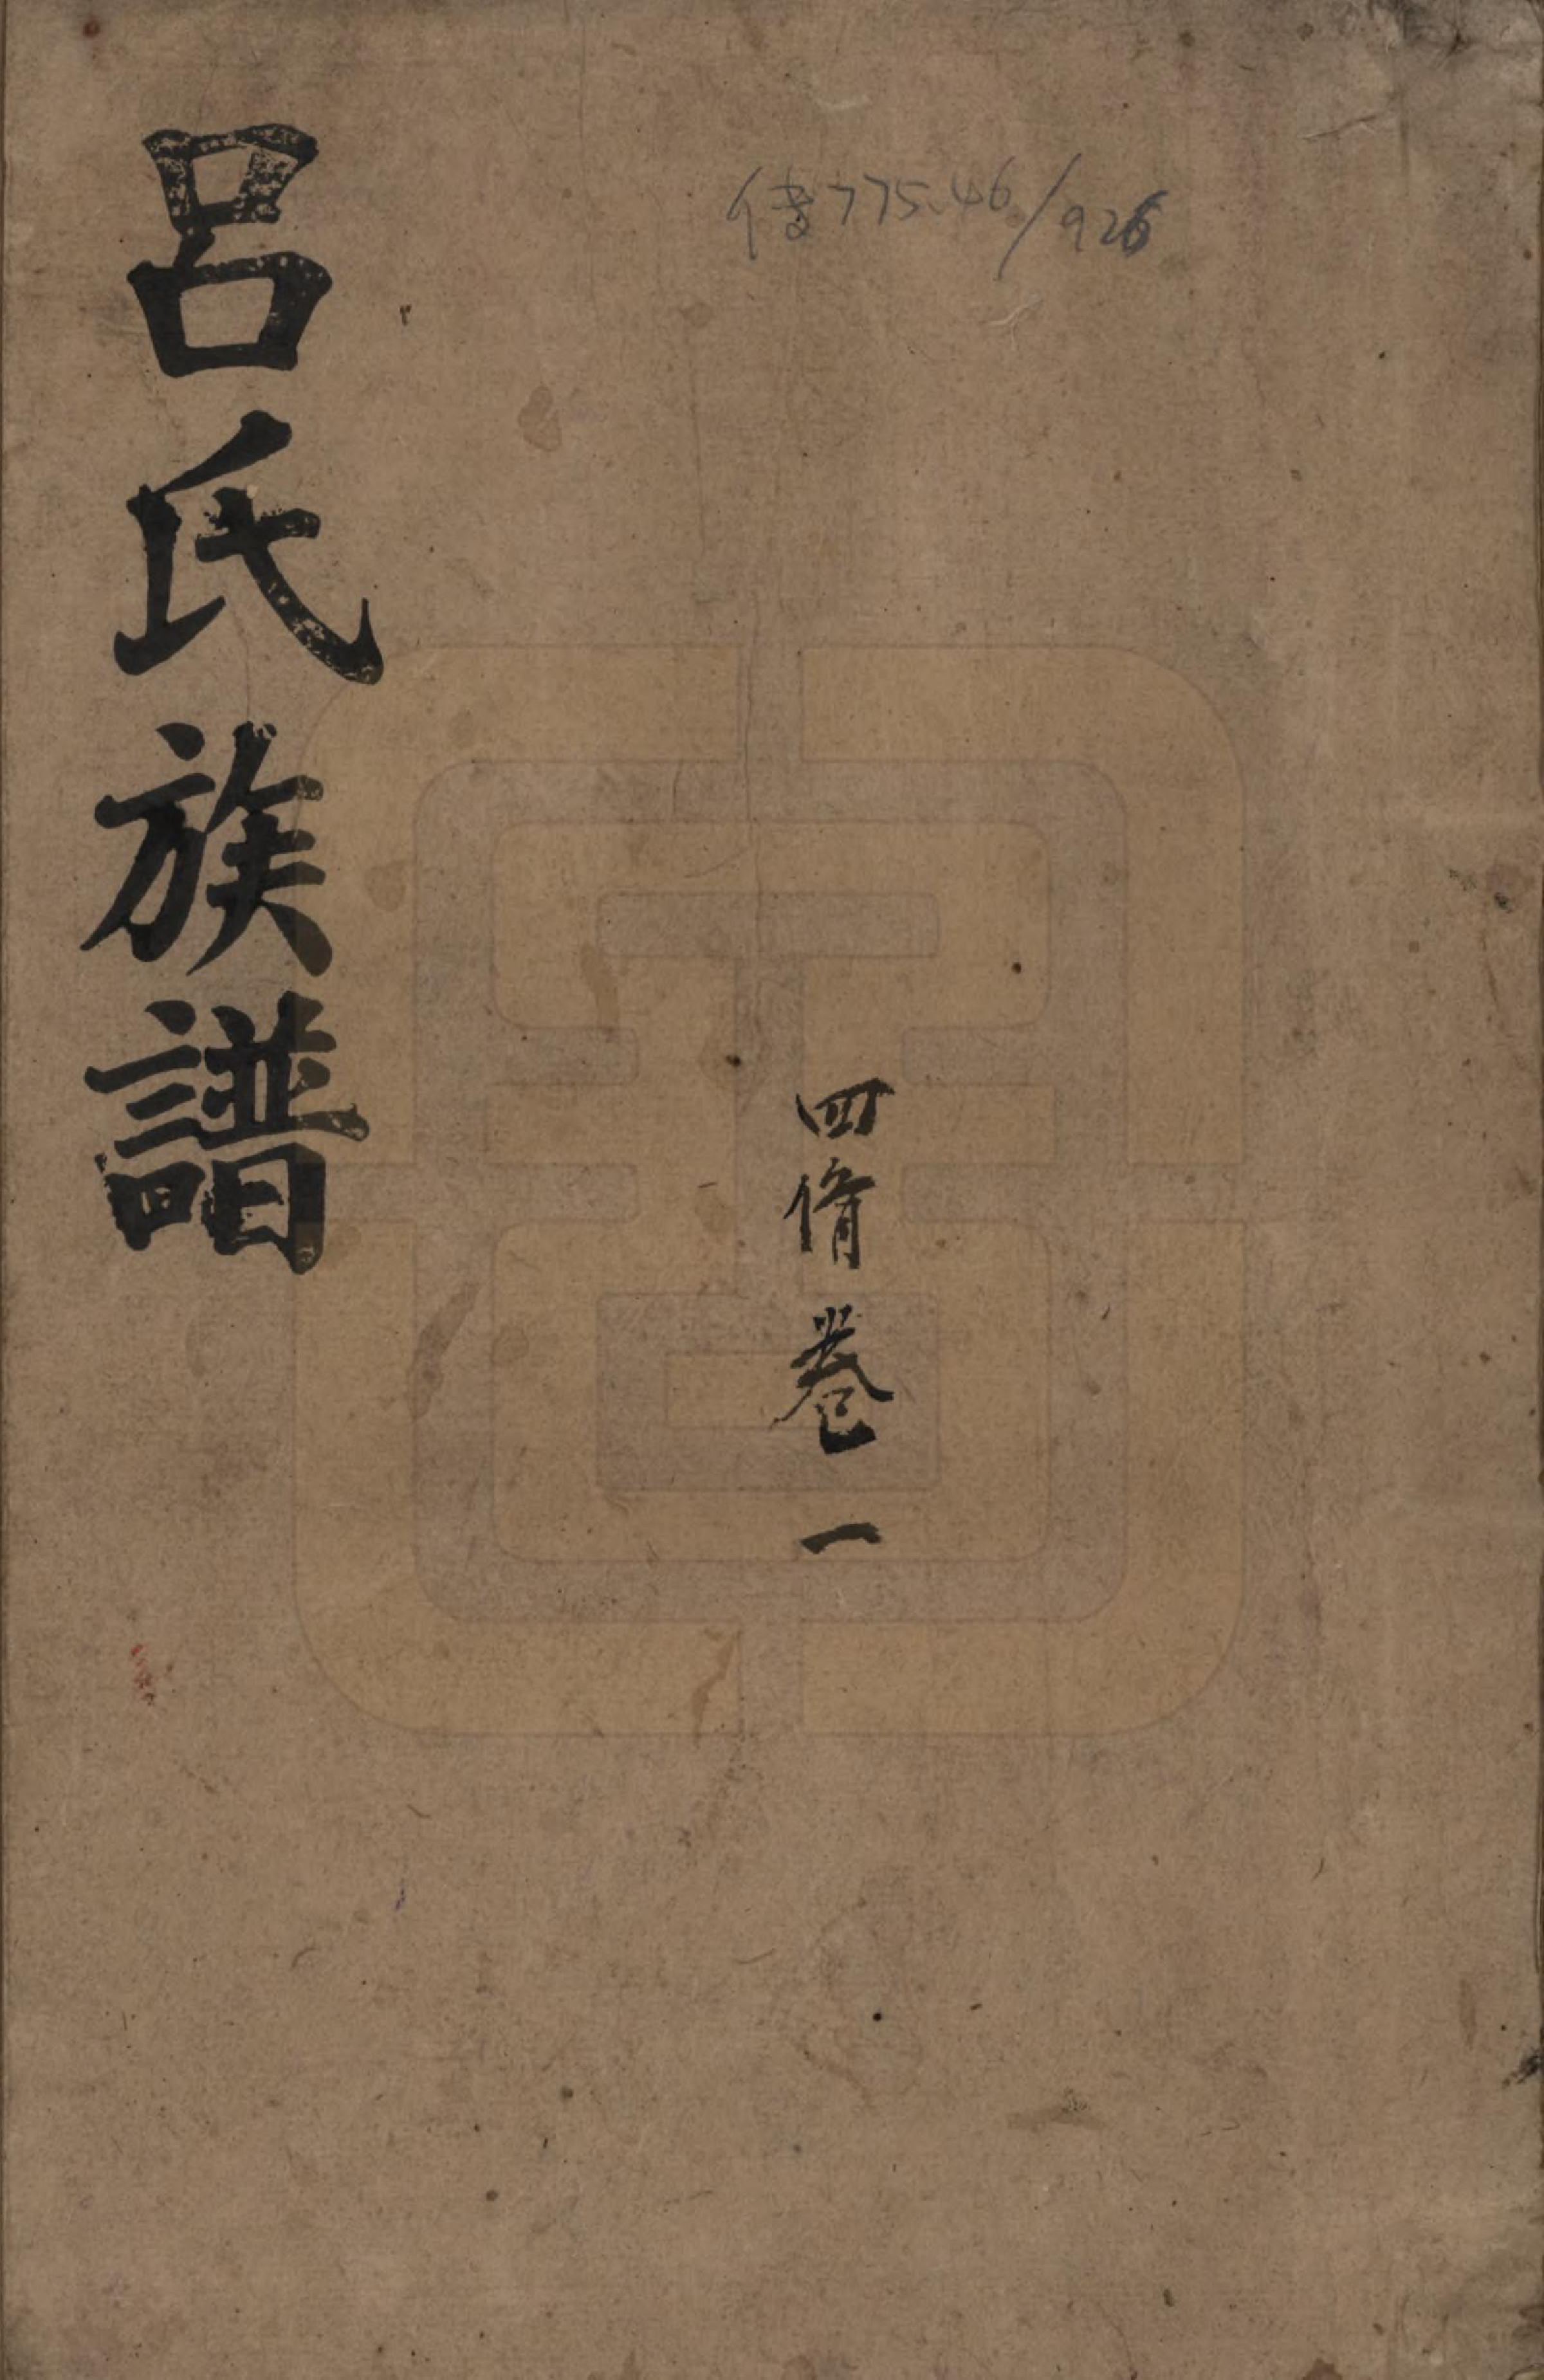 傳775.46/926
四脩卷一
呂氏族譜